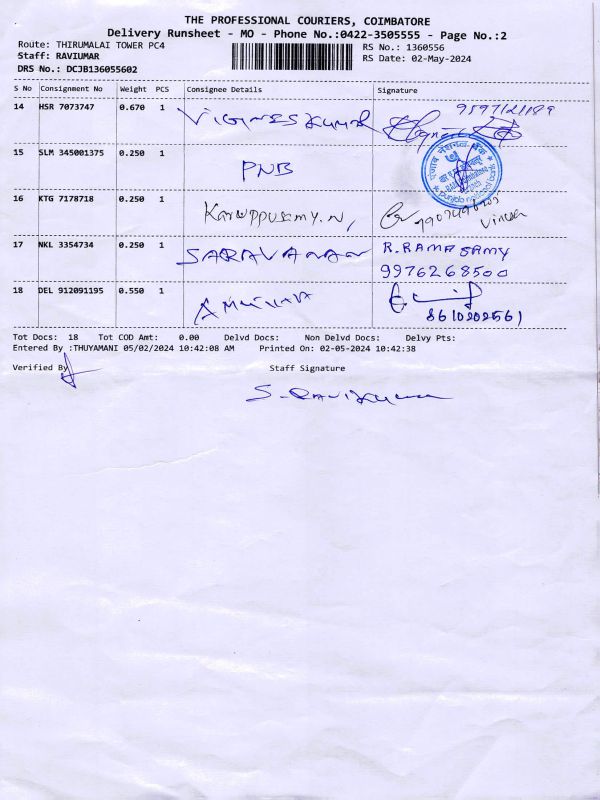 THE PROFESSIONAL COURIERS, COIMBATORE
Delivery Runsheet - MO - Phone No.:0422-3505555 - Page No.:2
Route: THIRUMALAI TOWER PC4
RS No.: 1360556
Staff: RAVIUMAR
RS Date: 02-May-2024
DRS No.: DCJB136055602
S No Consignment No Weight PCS Consignee Details Signature
14 HSR 7073747 0.670 1 VIGNESKUMAR
15 SLM 345001375 0.250 1 PNB
16 KTG 7178718 0.250 1 Karuppusamy.N,
17 NKL 3354734 0.250 1 SARAVANAN R.RAMASAMY
9976268500
18 DEL 912091195 0.550 1
8610202561
Tot Docs: 18 Tot COD Amt: 0.00 Delvd Docs: Non Delvd Docs: Delvy Pts:
Entered By :THUYAMANI 05/02/2024 10:42:08 AM Printed On: 02-05-2024 10:42:38
Verified By Staff Signature
S. Ravikumar